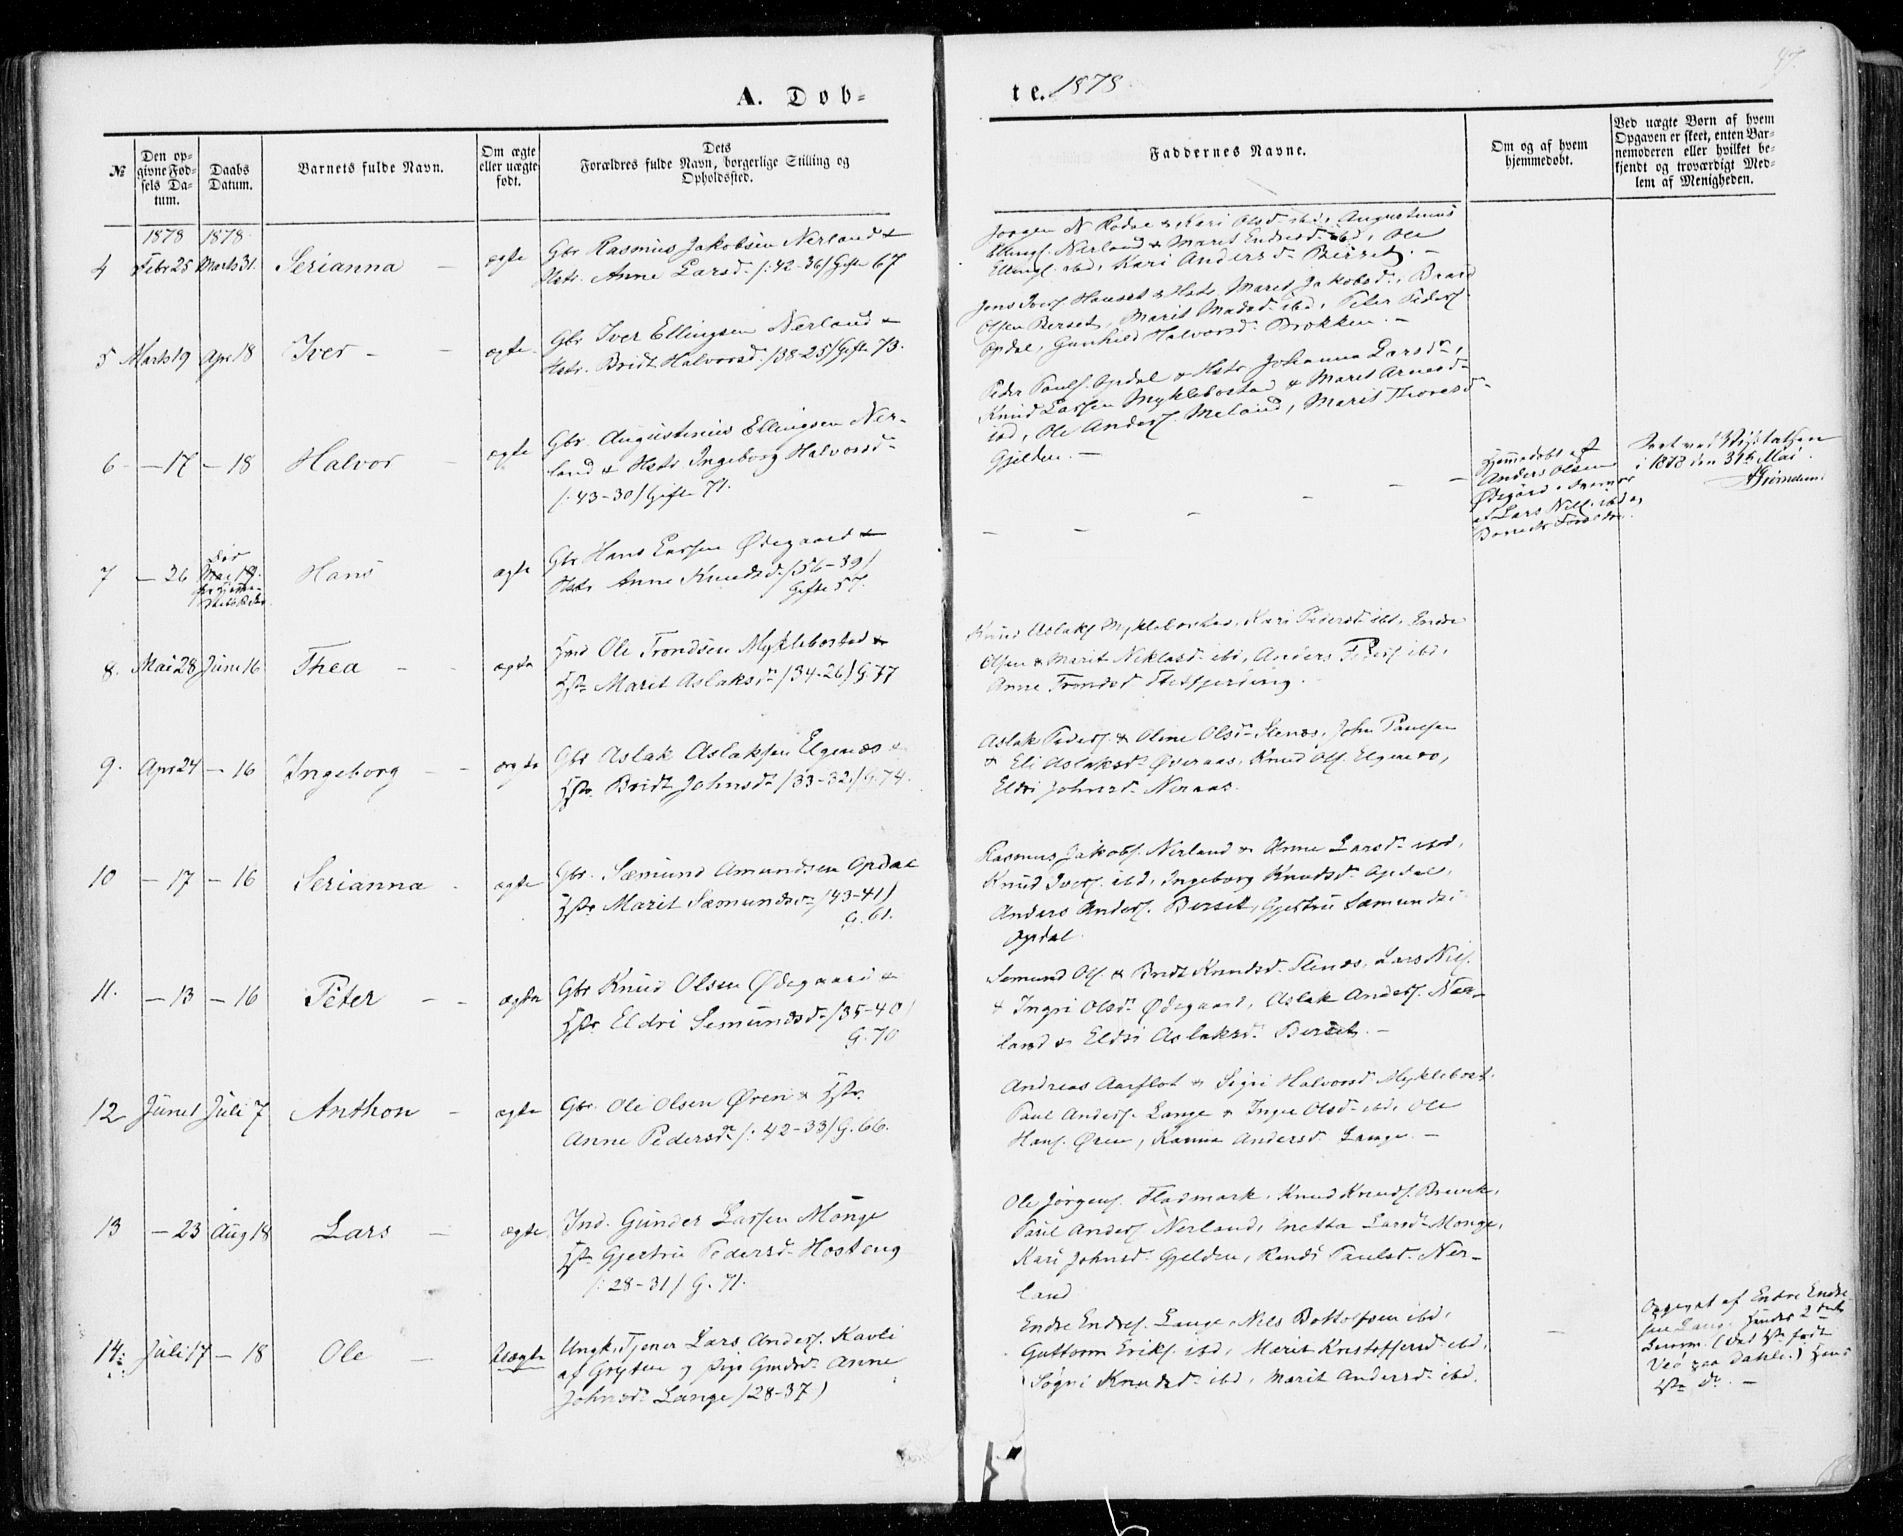 A. Døb-
te. 1878
№
Den op-
givne Fød-
sels Da-
tum.
Daabs
Datum.
Barnets fulde Navn.
Om ægte
eller uægte
født.
Dets
Forældres fulde Navn, borgerlige Stilling og
Opholdssted.
Faddernes Navne.
Om og af hvem
hjemmedøbt.
Ved uægte Børn af hvem
Opgaven er skeet, enten Bar-
nemoderen eller hvilket be-
kjendt og troværdigt Med-
lem af Menigheden.
1878 1878
4 Febr 25 Marts 31. Serianna — ægte
Gbr Rasmus Jakobsen Nerland &
Hstr. Anne Larsd. /: 42-36/ Gifte 67
Jørgen N Rødse & Kari Olsd ibd, Augustinus
Ellings. Nerland & Marit Endresd ibd, Ole
Ellings. ibd, Kari Andersd Berset. —
5 Marts 19 Apr 18 Iver — ægte
Gbr Iver Ellingsen Nerland &
Hstr. Bridt Halvorsd. /38-25/ Gifte 73.
Jens Ivers Hauset & Hstr. Marit Jakobsd., Baard
Olsen Berset, Marit Madsd ibd, Peter Peders.
Opdal, Gunhild Halvorsd. Brokken. —
6 — 17 — 18 Halvor — ægte
Gbr. Augustinus Ellingsen Ner-
land & Hstr. Ingeborg Halvorsd
/: 43-30/ Gifte 71.
Peder Pauls. Opdal & Hstr Johanna Larsd.,
Knud Larsen Myklebostad & Marit Arnesd
ibd, Ole Anders. Meland, Marit Thoresd
Gjelden. —
7 — 26 Mai 19. Hans ægte
Gbr Hans Larsen Ødegaard &
Hstr Anne Knudsd. /: 56-39/
Gifte 57.
— — — — — —
Hjemmedøbt af
Anders Olsen
Ødegård i Nærvær
af Lars Nils. ibd og
Barnets Forældre.
i 1878 den 31te Mai.
8. Mai 28 Juni 16. Thea — — ægte
Ind Ole Trondsen Myklebostad &
Hstr Marit Aslaksdr /34-26/ G. 77
Knud Aslaks Myklebostad, Kari Pedersd ibd, Endre
Olsen & Marit Niklasd ibd, Anders Peders ibd,
Anne Trondsd
9. Apr 24 — 16 Ingeborg — — ægte
Gbr Aslak Aslaksen Elgenæs &
Hstr. Bridt Johnsdr /33-32/ G. 74.
Aslak Peders. & Oline Olsdr Stenæs, John Paulsen
& Eli Aslaksdr Øveraas, Knud Ols. Elgenes,
Eldri Johnsd. Neraas.
10 — 17 — 16 Serianna — ægte
Gbr. Sæmund Amundsen Opdal
Hstr Marit Sæmundsdr /43-41/
G. 61.
Rasmus Jakobs. Nerland & Anne Larsd. ibd,
Knud Ivers. ibd, Ingeborg Knudsd. Opdal,
Anders Anders. Berset, Gjertru Sæmundsd.
Opdal.
11. — 13 — 16 Peter — — ægte
Gbr Knud Olsen Ødegaard &
Hstr Eldri Semundsd. /35-40/
G. 70
Semund Ols. & Bridt Knudsd. Stenæs, Lars Nils.
& Ingri Olsdr Ødegaard, Aslak Anders. Ner-
land & Eldri Aslaksd. Berset. —
12 Juni 1 Juli 7 Anthon — ægte
Gbr. Ole Olsen Øren & Hstr.
Anne Pedersdr /: 42-33/ G. 66.
Andreas Aarflot & Sigri Halvorsd Myklebost.
Paul Anders. Lange & Inger Olsd ibd, Ole
Hans. Øren, Karine Andersd. Lange. —
13 — 23 Aug 18 Lars — ægte
Ind. Gunder Larsen Monge
Hstr Gjertru Pedersd. Hosteng
/: 28-31/ G. 71.
Ole Jørgens. Fladmark, Knud Knuds. Bruvik,
Paul Anders. Nerland, Anetta Larsd. Monge,
Kari Johnsd. Gjelden, Randi Paulsd. Ner-
land
14: Juli 17 — 18 Ole — Uægte
Ungk, Tjener Lars Anders. Kavli
af Grytten og Pige Gmdsd. Anne
Johnsd. Lange /28-37/
Endre Endres. Lange, Nils Bottolfsen ibd,
Guttorm Eriks. ibd, Marit Kristoffersd ibd,
Sigri Knudsd. ibd, Marit Andersd. ibd.
—
Opgivet af Endre Endre-
sen Lange. Hendes 2det
Leierm. (Det 1ste født
Veø paa Dahle.) Hans
1ste do. —